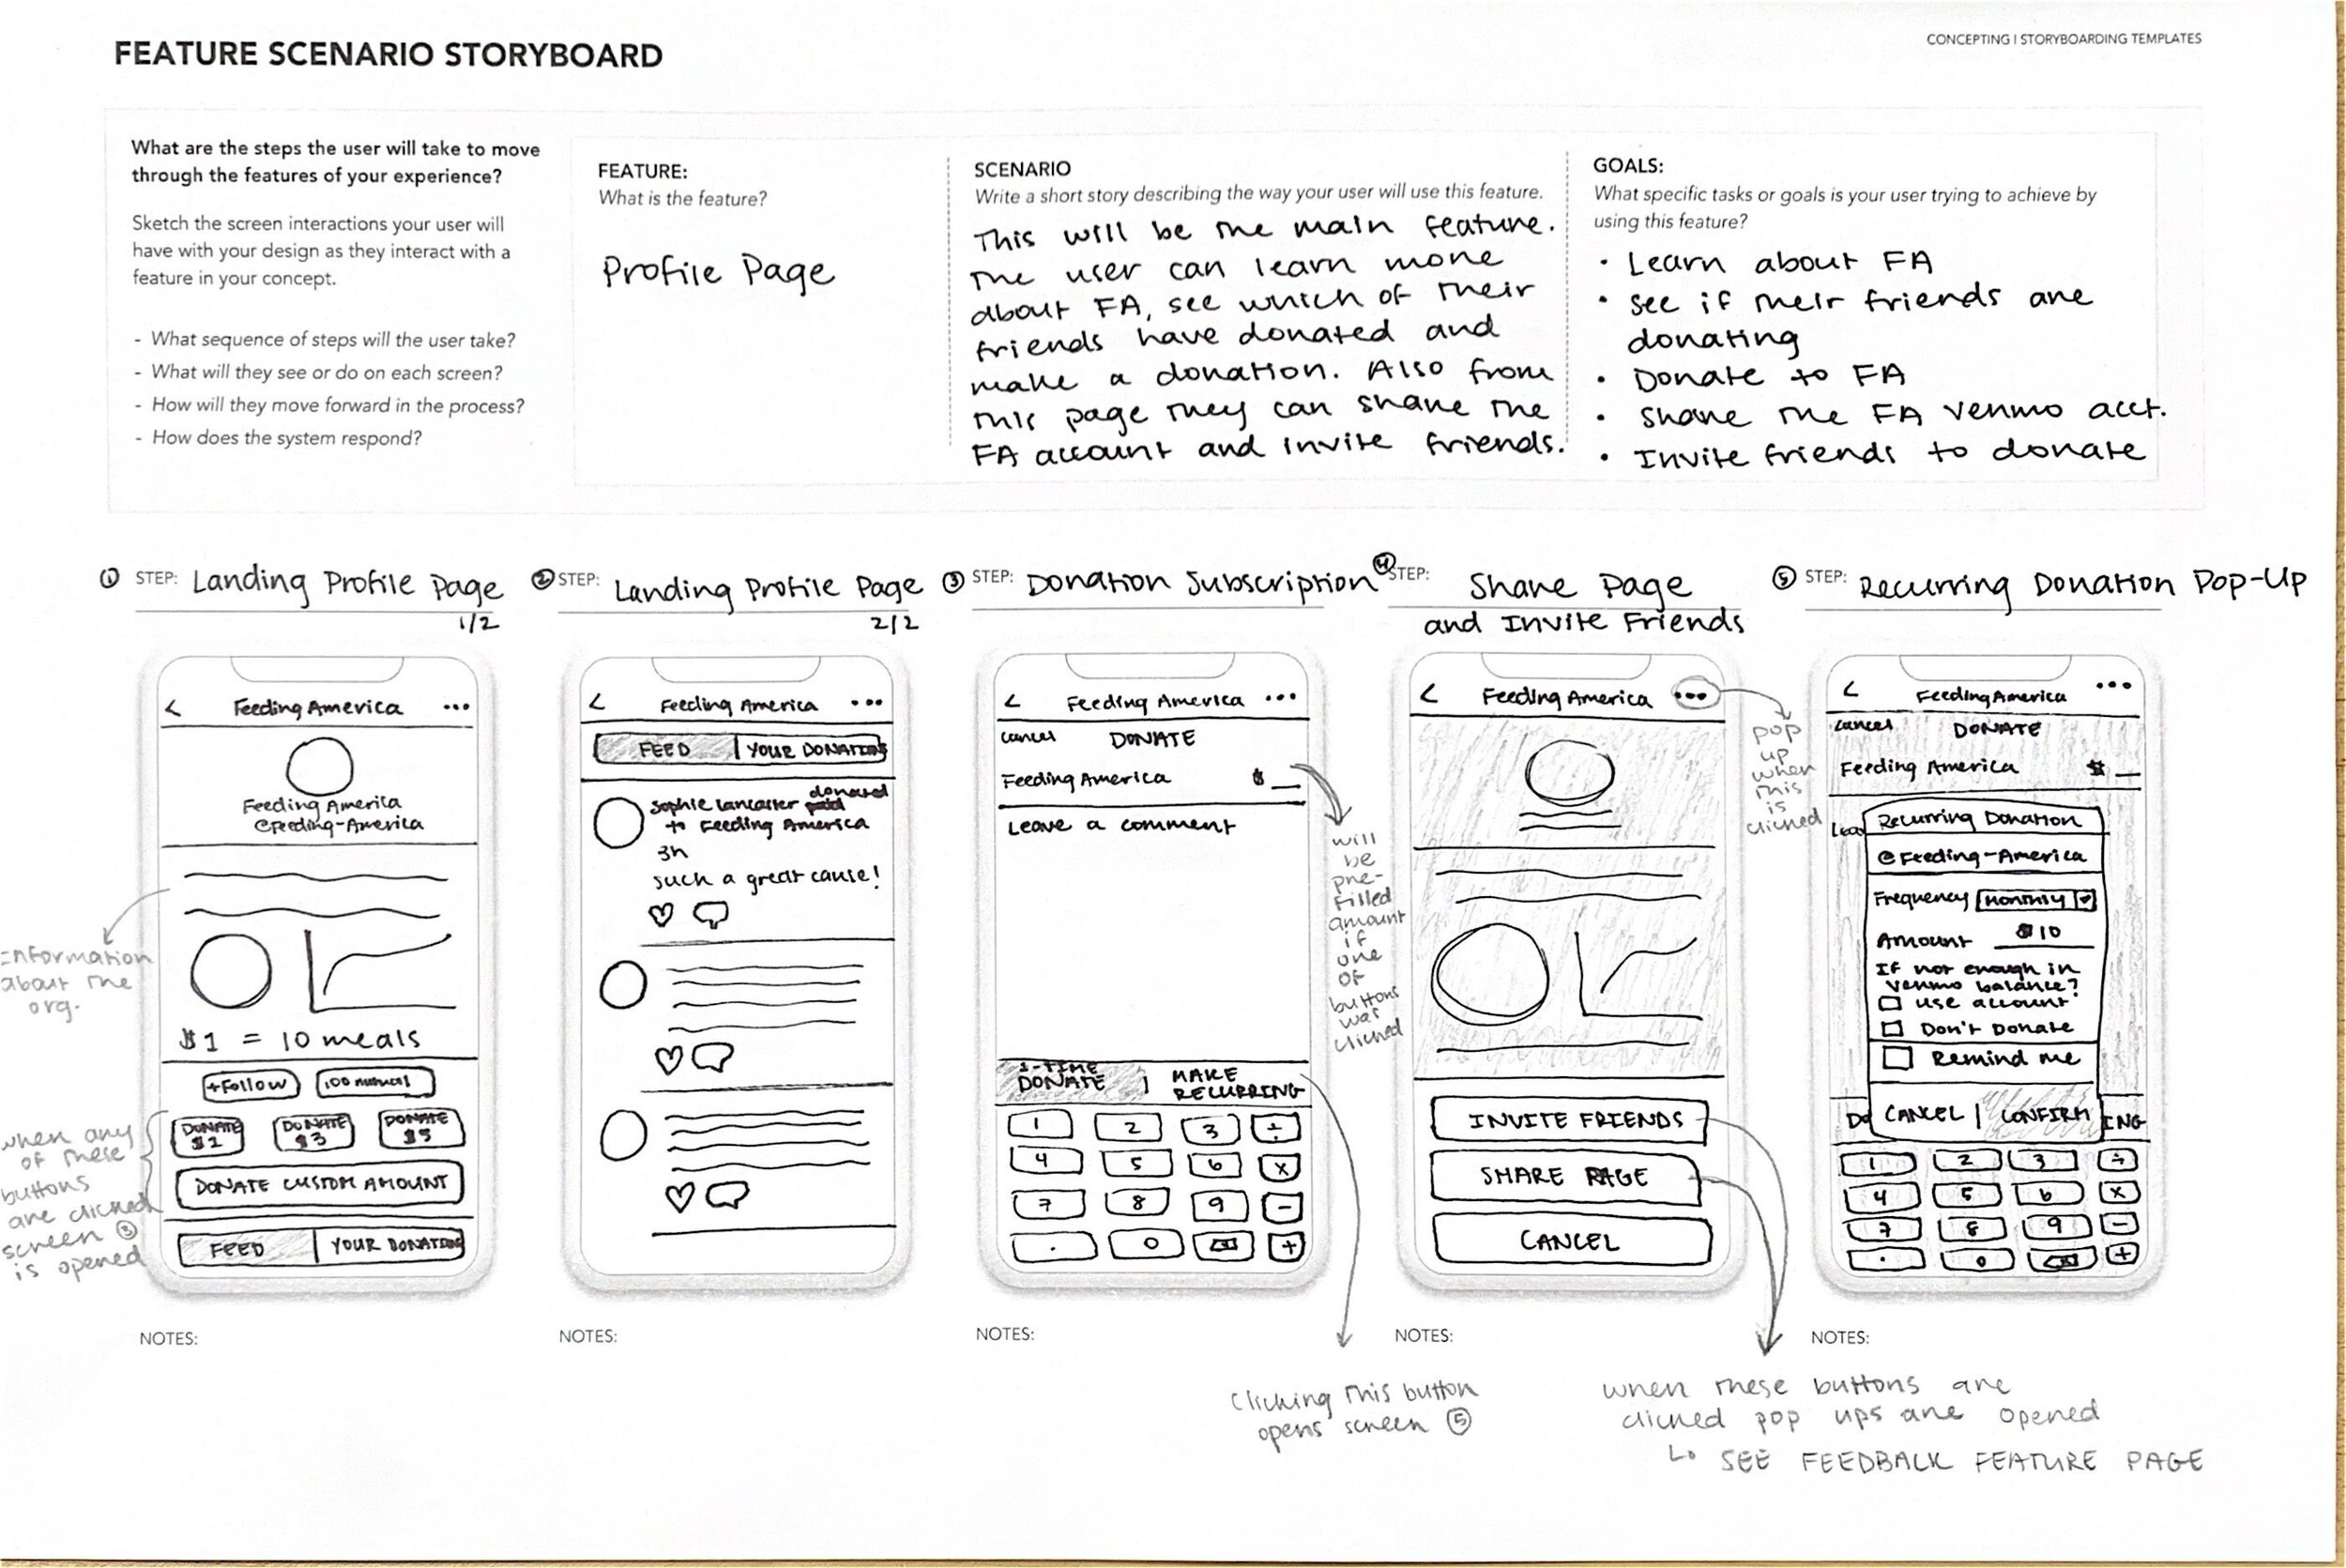 FEATURE SCENARIO STORYBOARD
CONCEPTING | STORYBOARDING TEMPLATES
What are the steps the user will take to move
through the features of your experience?
Sketch the screen interactions your user will
have with your design as they interact with a
feature in your concept.
- What sequence of steps will the user take?
- What will they see or do on each screen?
- How will they move forward in the process?
- How does the system respond?
FEATURE:
What is the feature?
Profile Page
SCENARIO
Write a short story describing the way your user will use this feature.
This will be the main feature.
The user can learn more
about FA, see which of their
friends have donated and
make a donation. Also from
this page they can share the
FA account and invite friends.
GOALS:
What specific tasks or goals is your user trying to achieve by
using this feature?
• Learn about FA
• see if their friends are
donating
• Donate to FA
• Share the FA venmo acct.
• Invite friends to donate
① STEP: Landing Profile Page
1/2
< Feeding America •••
Feeding America
@Feeding-America
$1 = 10 meals
+Follow 100 mutual
DONATE $1 DONATE $3 DONATE $5
DONATE CUSTOM AMOUNT
FEED | YOUR DONATIONS
Information
about the
org.
when any
of these
buttons
are clicked
screen ③
is opened
NOTES:
② STEP: Landing Profile Page
2/2
< Feeding America •••
FEED | YOUR DONATIONS
Sophie Lancaster donated
to Feeding America
3h
such a great cause!
NOTES:
③ STEP: Donation Subscription
< Feeding America •••
Cancel DONATE
Feeding America $ __
Leave a comment
1-TIME
DONATE | MAKE
RECURRING
1 2 3 ÷
4 5 6 x
7 8 9 -
. 0 +
will
be
pre-
filled
amount
if
one
of
buttons
was
clicked
NOTES:
clicking this button
opens screen ⑤
④ STEP: Share Page
and Invite Friends
< Feeding America •••
INVITE FRIENDS
SHARE PAGE
CANCEL
pop
up
when
this
is
clicked
NOTES:
when these buttons are
clicked pop ups are opened
↳ SEE FEEDBACK FEATURE PAGE
⑤ STEP: Recurring Donation Pop-Up
< Feeding America •••
Cancel DONATE
Feeding America $ __
Lea
Recurring Donation
@Feeding-America
Frequency Monthly
Amount $10
If not enough in
venmo balance?
use account
Don't Donate
Remind me
DO CANCEL | CONFIRM ING
1 2 3 ÷
4 5 6 x
7 8 9 -
. 0 +
NOTES: